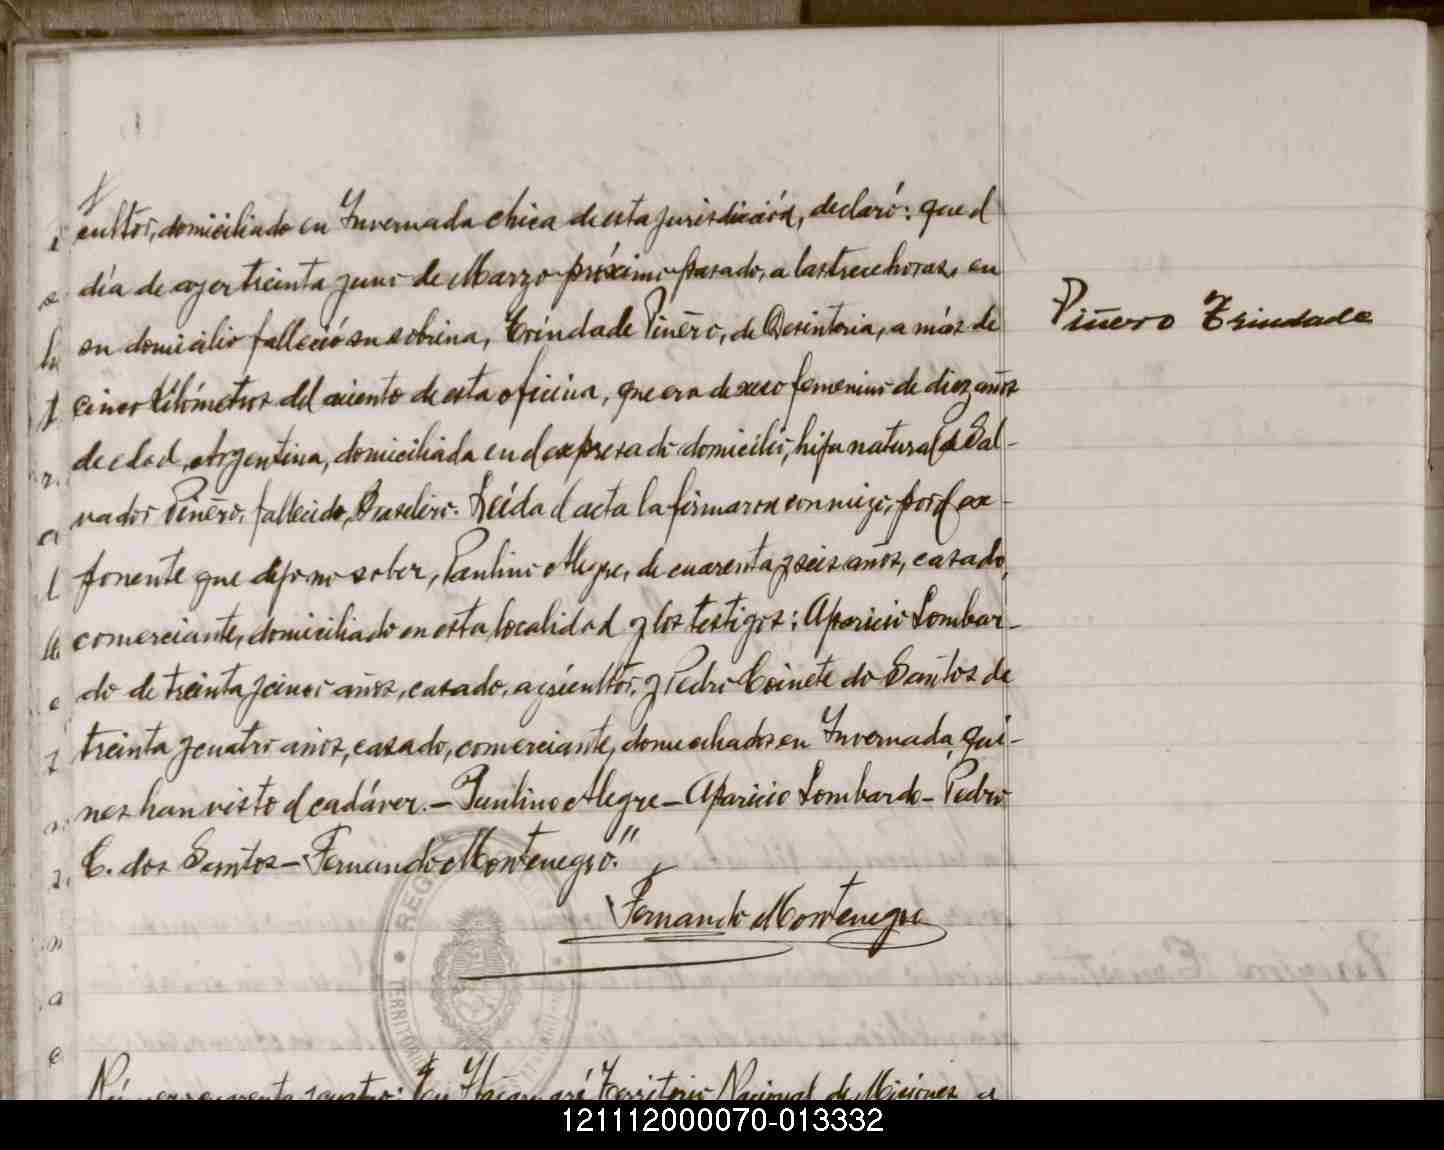 cultor, domiciliado en Invernada chica de esta jurisdicción, declaró: que el
día de ayer treinta y uno de Marzo próximo pasado, a las trece horas, en
su domicilio falleció su sobrina, Trindade Piñero, de Disinteria, a más de
cinco kilómetros del asiento de esta oficina, que era de sexo femenino de diez años
de edad, Argentina, domiciliada en el expresado domicilio, hija natural de Sal-
vador Piñero, fallecido, Brasilero. Leída el acta la firmaron conmigo, por el ex-
ponente que dijo no saber, Paulino Alegre, de cuarenta y seis años, casado,
comerciante, domiciliado en esta localidad y los testigos: Aparicio Lombar-
do de treinta y cinco años, casado, agricultor, y Pedro Coinete do Santos de
treinta y cuatro años, casado, comerciante, domiciliados en Invernada, qui-
nes han visto el cadáver. — Paulino Alegre — Aparicio Lombardo — Pedro
C. dos Santos — Fernando Montenegro."
Fernando Montenegro
Número cuarenta y cuatro: En Itacaruaré Territorio Nacional de Misiones, a
Piñero Trindade
REG
TERRITORIO
121112000070-013332